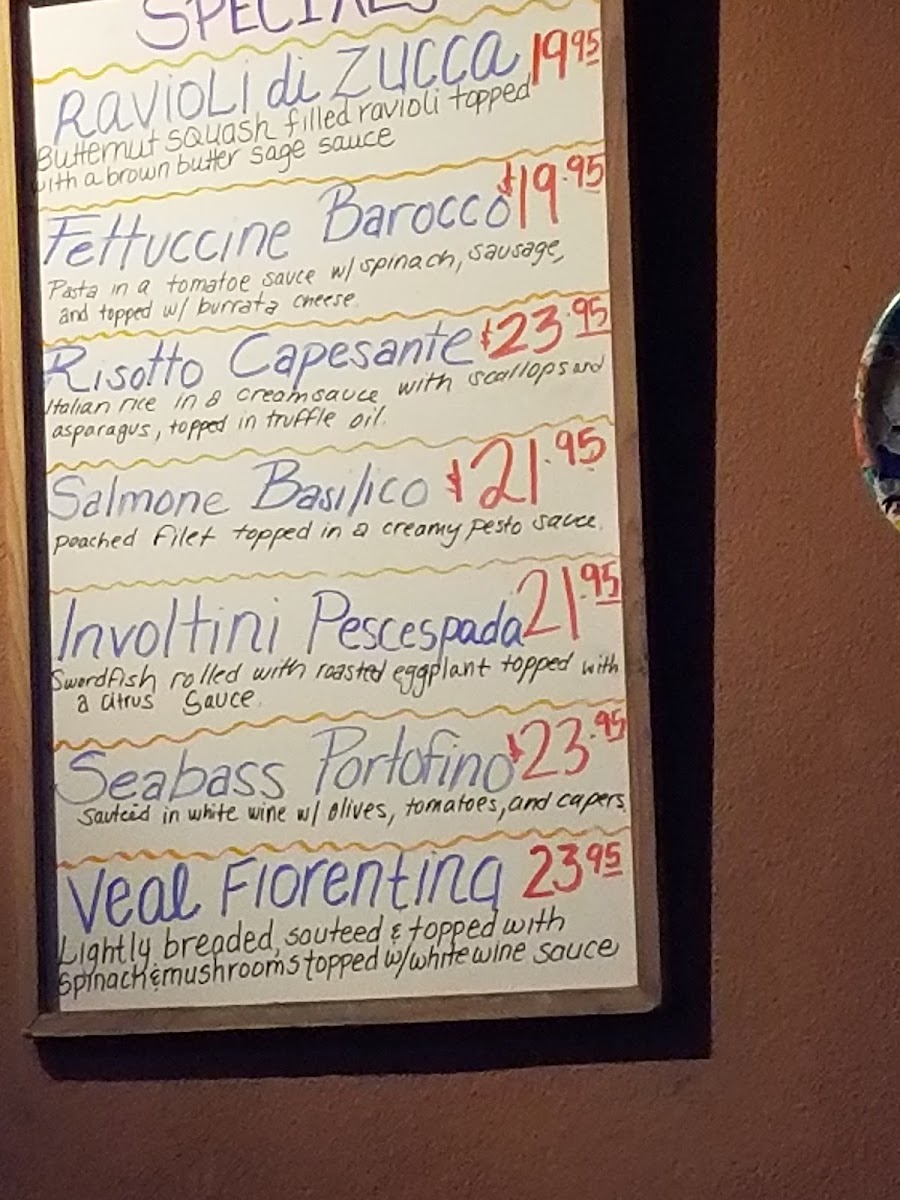 SPECIALS
Ravioli di Zucca 19 95
Butternut squash filled ravioli topped
with a brown butter sage sauce
Fettuccine Barocco $19.95
Pasta in a tomatoe sauce w/ spinach, sausage,
and topped w/ burrata cheese.
Risotto Capesante $23.95
Italian rice in a creamsauce with scallops and
asparagus, topped in truffle oil.
Salmone Basilico $21.95
poached filet topped in a creamy pesto sauce.
Involtini Pescespada 21.95
Swordfish rolled with roasted eggplant topped with
a citrus sauce.
Seabass Portofino $23.95
Sauteéd in white wine w/ olives, tomatoes, and capers
Veal Fiorentina 23 95
Lightly breaded, sauteed & topped with
spinach & mushrooms topped w/ white wine sauce